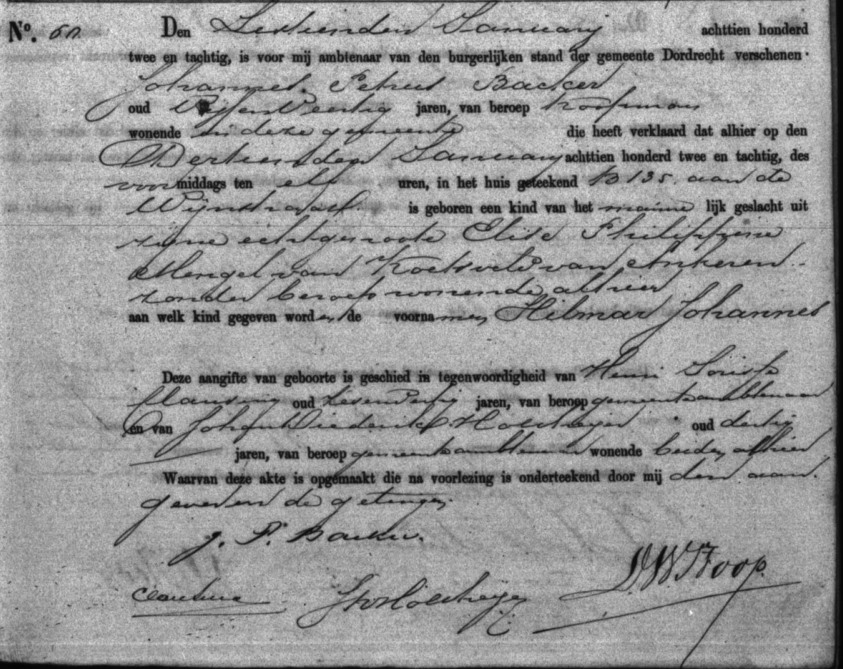 No. 60. Den Zestienden Januarij achttien honderd
twee en tachtig, is voor mij ambtenaar van den burgerlijken stand der gemeente Dordrecht verschenen
Johannes Petrus Backer
oud Vijfenveertig jaren, van beroep Koopman
wonende in deze gemeente die heeft verklaard dat alhier op den
Dertienden Januarij achttien honderd twee en tachtig, des
voor middags ten elf uren, in het huis geteekend B 135. aan de
Wijnstraat. is geboren een kind van het manne lijk geslacht uit
zijne echtgenoote Elise Philippine
Mengel van
zonder beroep wonende alhier
aan welk kind gegeven worden de voorna men, Hilmar Johannes
Deze aangifte van geboorte is geschied in tegenwoordigheid van Henri
oud jaren, van beroep gemeenteambtenaar
en van Johan Diederik oud dertig
jaren, van beroep gemeenteambtenaar wonende beiden alhier
Waarvan deze akte is opgemaakt die na voorlezing is onderteekend door mij den aan-
gever en de getuigen.
J. P. Backer.